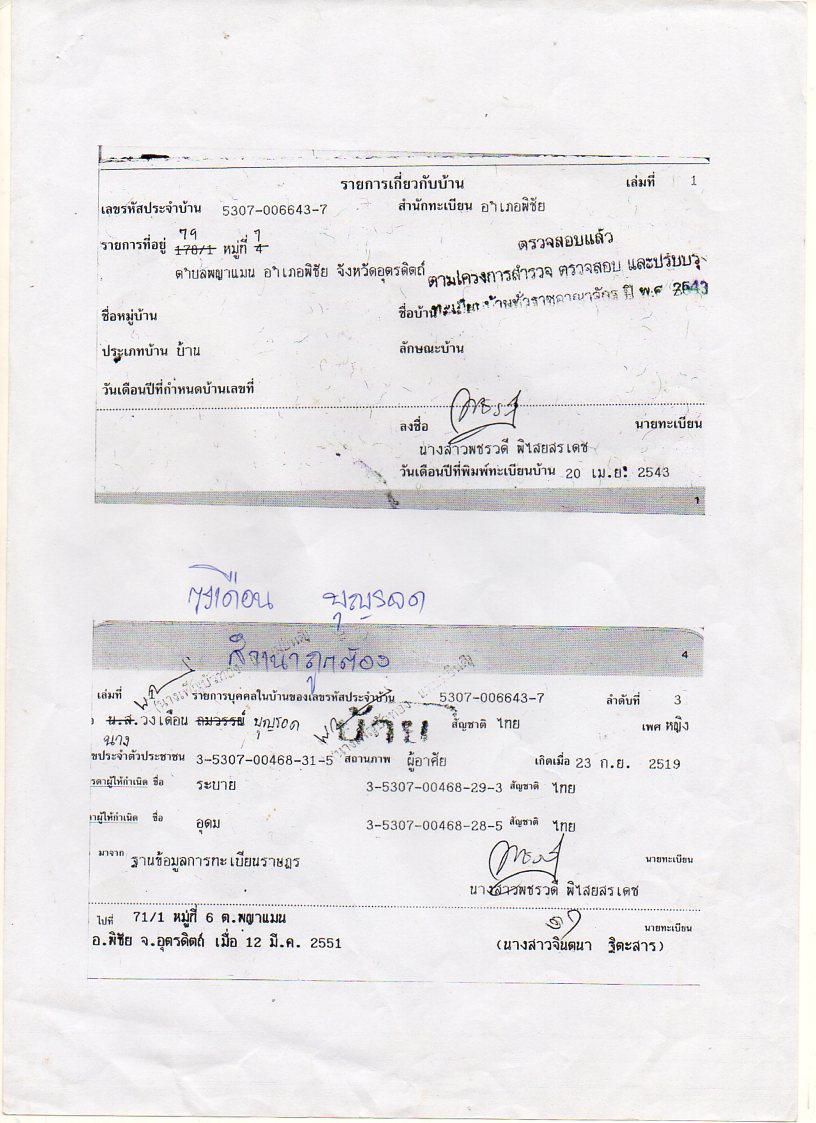 รายการเกี่ยวกับบ้าน เล่มที่ 1
เลขรหัสประจำบ้าน 5307-006643-7 สำนักทะเบียน อำเภอพิชัย
79 7
รายการที่อยู่ 178/1 หมู่ที่ 4
ตรวจสอบแล้ว
ตำบลพญาแมน อำเภอพิชัย จังหวัดอุตรดิตถ์
ตามโครงการสำรวจ ตรวจสอบ และปรับปรุง
ทะเบียนบ้านทั่วราชอาณาจักร ปี พ.ศ 2543
ชื่อหมู่บ้าน ชื่อบ้าน
ประเภทบ้าน บ้าน ลักษณะบ้าน
วันเดือนปีที่กำหนดบ้านเลขที่
ลงชื่อ นายทะเบียน
นางสาวพชรวดี พิไสยสรเดช
วันเดือนปีที่พิมพ์ทะเบียนบ้าน 20 เม.ย. 2543
1
วงเดือน บุญรอด
สำเนาถูกต้อง
4
เล่มที่ รายการบุคคลในบ้านของเลขรหัสประจำบ้าน 5307-006643-7 ลำดับที่ 3
น.ส.วงเดือน ถมวรรณ์ บุญรอด สัญชาติ ไทย เพศ หญิง
นาง
ย้าย
ขประจำตัวประชาชน 3-5307-00468-31-5 สถานภาพ ผู้อาศัย เกิดเมื่อ 23 ก.ย. 2519
ารดาผู้ให้กำเนิด ชื่อ ระบาย 3-5307-00468-29-3 สัญชาติ ไทย
ดาผู้ให้กำเนิด ชื่อ อุดม 3-5307-00468-28-5 สัญชาติ ไทย
มาจาก ฐานข้อมูลการทะเบียนราษฎร นายทะเบียน
นางสาวพชรวดี พิไสยสรเดช
ไปที่ 71/1 หมู่ที่ 6 ต.พญาแมน นายทะเบียน
อ.พิชัย จ.อุตรดิตถ์ เมื่อ 12 มี.ค. 2551 (นางสาวจินตนา ฐิตะสาร)